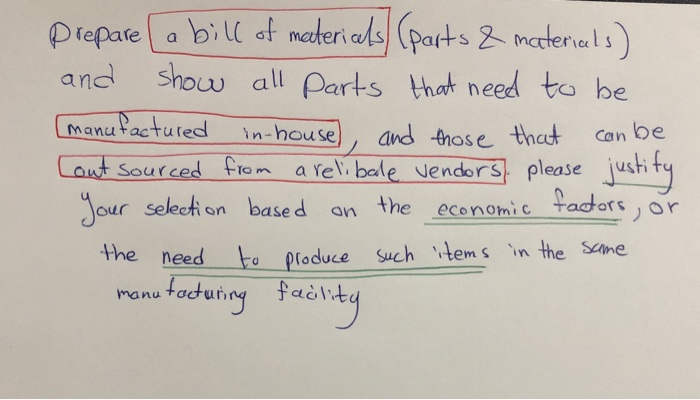 Prepare a bill of materials (parts & materials)
and show all Parts that need to be
manufactured in-house, and those that can be
out sourced from a relibale vendors. please justify
Your selection based on the economic factors, or
the need to produce such items in the same
manufacturing facility